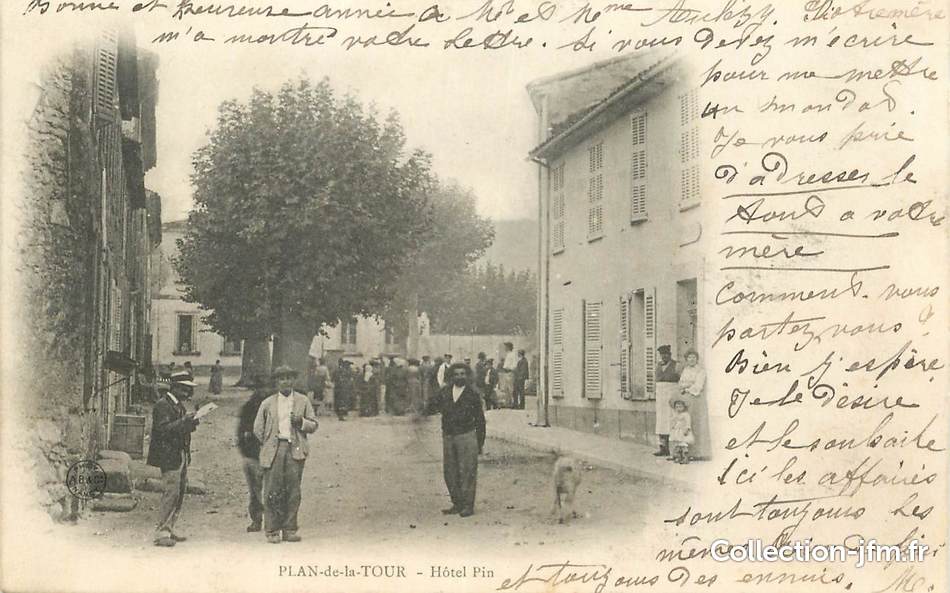 Bonne et heureuse année à Mr et Mme Notremère
m'a montré votre lettre. Si vous devez m'écrire
pour me mettre
un mondat.
Je vous prie
d'adresser le
tout a votre
mère
Comment. vous
portez vous ?
Bien j'espère
Je le désire
et le souhaite
Ici les affaires
sont toujours les
mêmes
et toujours des ennuis. M.
A.B&C
PLAN-de-la-TOUR - Hôtel Pin
Collection-jfm.fr